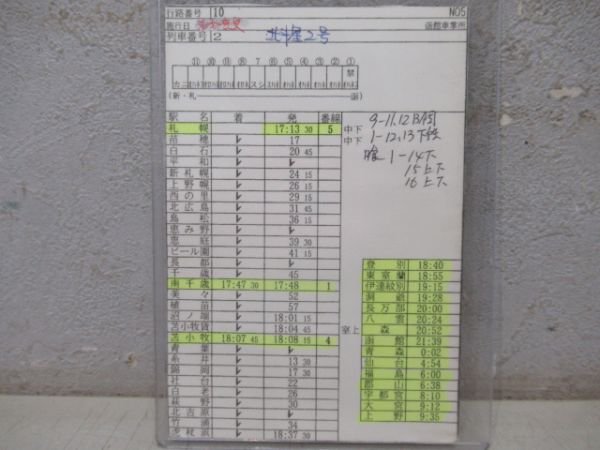 行路番号 10 NO5
施行日 函館車掌所
列車番号 2 北斗星2号
⑪ ⑩ ⑨ ⑧ 7 ⑥ ⑤ ④ ③ ② ①
禁
(新・札 函)
駅名 着 発 番線
札幌 17:13 30 5 中下
苗穂 レ 17 中下
白石 レ 20 45
平和 レ レ
新札幌 レ 24 15
上野幌 レ 26 15
西の里 レ 29 15
北広島 レ 31 45
島松 レ 36 15
恵み野 レ レ
恵庭 レ 39 30
ビール園 レ 41 15
長都 レ レ
千歳 レ 45
南千歳 17:47 30 17:48 1
美々 レ 52
植苗 レ 57
沼ノ端 レ 18:01 15
苫小牧貨 レ 18:04 45 室上
苫小牧 18:07 45 18:08 15 4
青葉 レ レ
糸井 レ 13 30
錦岡 レ 17 30
社台 レ 22
白老 レ 26
萩野 レ 30
北吉原 レ レ
竹浦 レ 34
虎杖浜 レ 18:37 30
9-11,12
1-12,13下
1-14下
15上下
16上下
登別 18:40
東室蘭 18:55
伊達紋別 19:15
洞爺 19:28
長万部 20:00
八雲 20:24
森 20:52
函館 21:39
青森 0:02
仙台 4:54
福島 6:00
郡山 6:38
宇都宮 8:10
大宮 9:12
上野 9:35